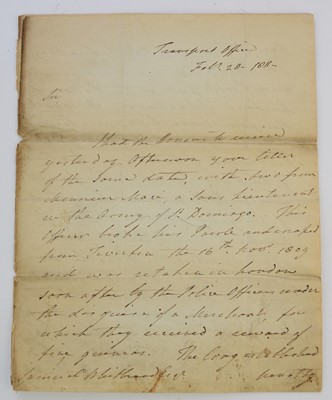 Transport Office
Feb. 20. 1811
Sir
I had the honour to receive
yesterday Afternoon your letter
of the same date, with two from
Monsieur a Sous Lieutenant
in the Army of St. Domingo. This
Officer broke his Parole and escaped
from Tiverton the 16th Novr. 1809
and was retaken in London
soon after by the Police Officers under
the disguise of a Merchant, for
which they received a reward of
five guineas. The
Samuel Whitbread Esqr.